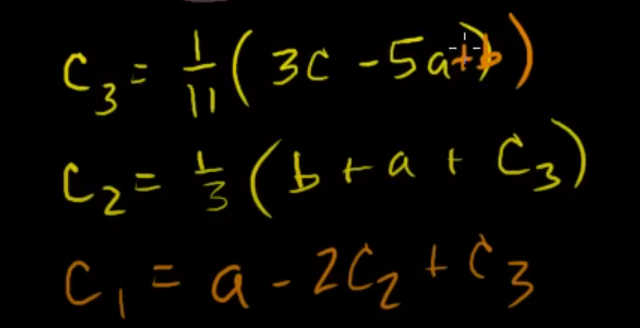 C₃ = 1/11 (3c - 5a + b)
C₂ = 1/3 (b + a + C₃)
C₁ = a - 2C₂ + C₃